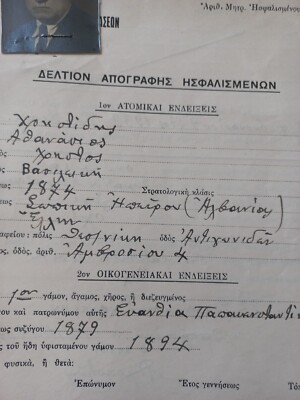 ΑΣΕΩΝ
Ἀριθ. Μητρ. Ἠσφαλισμένου
ΔΕΛΤΙΟΝ ΑΠΟΓΡΑΦΗΣ ΗΣΦΑΛΙΣΜΕΝΩΝ
1ον ΑΤΟΜΙΚΑΙ ΕΝΔΕΙΞΕΙΣ
Χρηστίδης
Ἀθανάσιος
ὸς Χρῆστος
ὸς Βασιλικὴ
εως 1874 Στρατολογικὴ κλάσις
εως Ἠπείρου (Ἀλβανίας)
Ἕλλην
αφείου: πόλις Θεσ/νίκη ὁδὸς Ἀντιγονιδῶν
ος, ὁδός, ἀριθ. Ἀμβροσίου 4
2ον ΟΙΚΟΓΕΝΕΙΑΚΑΙ ΕΝΔΕΙΞΕΙΣ
1ον γάμον, ἄγαμος, χῆρος, ἢ διεζευγμένος
νου καὶ πατρωνύμου αὐτῆς Εὐανθία
εως συζύγου 1879
ὸς τοῦ ἤδη ὑφισταμένου γάμου 1894
φυσικά, ἢ θετά:
Ἐπώνυμον Ἔτος γεννήσεως